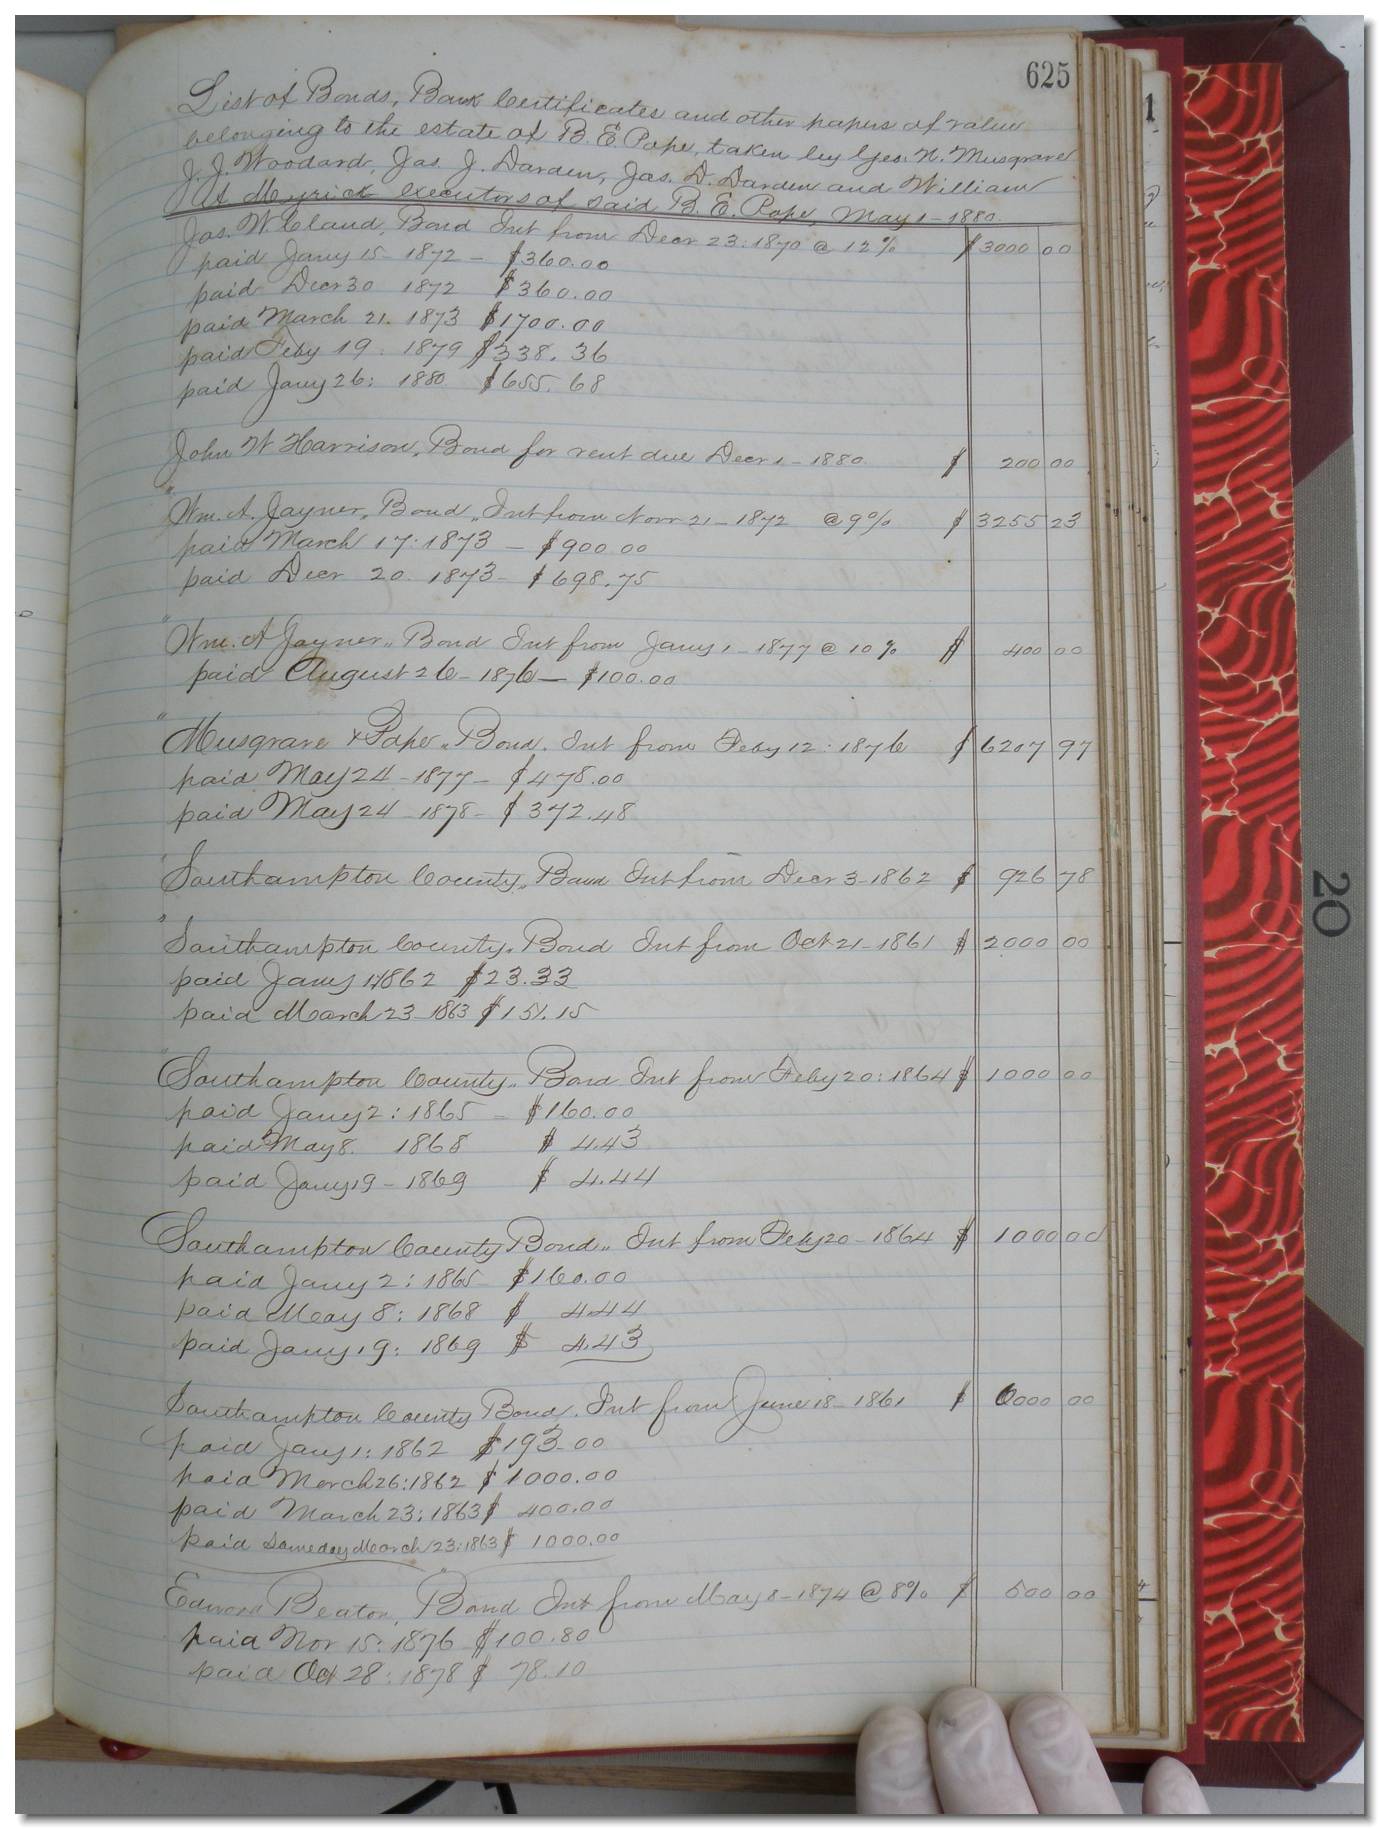 625
List of Bonds, Bank Certificates and other papers of value
belonging to the estate of B. E. Pope, taken by Geo. N. Musgrave
J. J. Woodard, Jas. J. Darden, Jas. D. Darden and William
At Myrick executors of said B. E. Pope, May 1 - 1880.
Jas. W Claud, Bond Int from Decr 23: 1870 @ 12% $ 3000 00
paid Jany 15 - 1872 - $360.00
paid Decr 30 1872 $360.00
paid March 21. 1873 $1700.00
paid Feby 19: 1879 $338.36
paid Jany 26: 1880 $655.68
John W Harrison, Bond for rent due Decr 1 - 1880 $ 200 00
" Wm. A. Jayner, Bond Int from Novr 21 - 1872 @ 9% $ 3255 23
paid March 17: 1873 - $900.00
paid Decr 20. 1873 - $698.75
" Wm. A Jayner, Bond Int from Jany 1 - 1877 @ 10% $ 400 00
paid August 26 - 1876 - $100.00
" Musgrave & Pope, Bond. Int from Feby 12: 1876 $ 6207 97
paid May 24 - 1877 - $478.00
paid May 24 - 1878 - $372.48
Southampton County, Bond Int from Decr 3 - 1862 $ 926 78
" Southampton County, Bond Int from Oct 21 - 1861 $ 2000 00
paid Jany 1 1862 $23.33
paid March 23 - 1863 $151.15
" Southampton County, Bond Int from Feby 20: 1864 $ 1000 00
paid Jany 2: 1865 - $160.00
paid May 8. 1868 $ 4.43
paid Jany 19 - 1869 $ 4.44
Southampton County Bond, Int from Feby 20 - 1864 $ 1000 00
paid Jany 2: 1865 $160.00
paid May 8: 1868 $ 4.44
paid Jany 19: 1869 $ 4.43
Southampton County Bond. Int from June 18 - 1861 $ 6000 00
paid Jany 1: 1862 $193.00
paid March 26: 1862 $1000.00
paid March 23: 1863 $ 400.00
paid same day March 23: 1863 $ 1000.00
Edward Beaton, Bond Int from May 8 - 1874 @ 8% $ 500 00
paid Nov 15: 1876 $100.80
paid Oct 28: 1878 $ 78.10
20